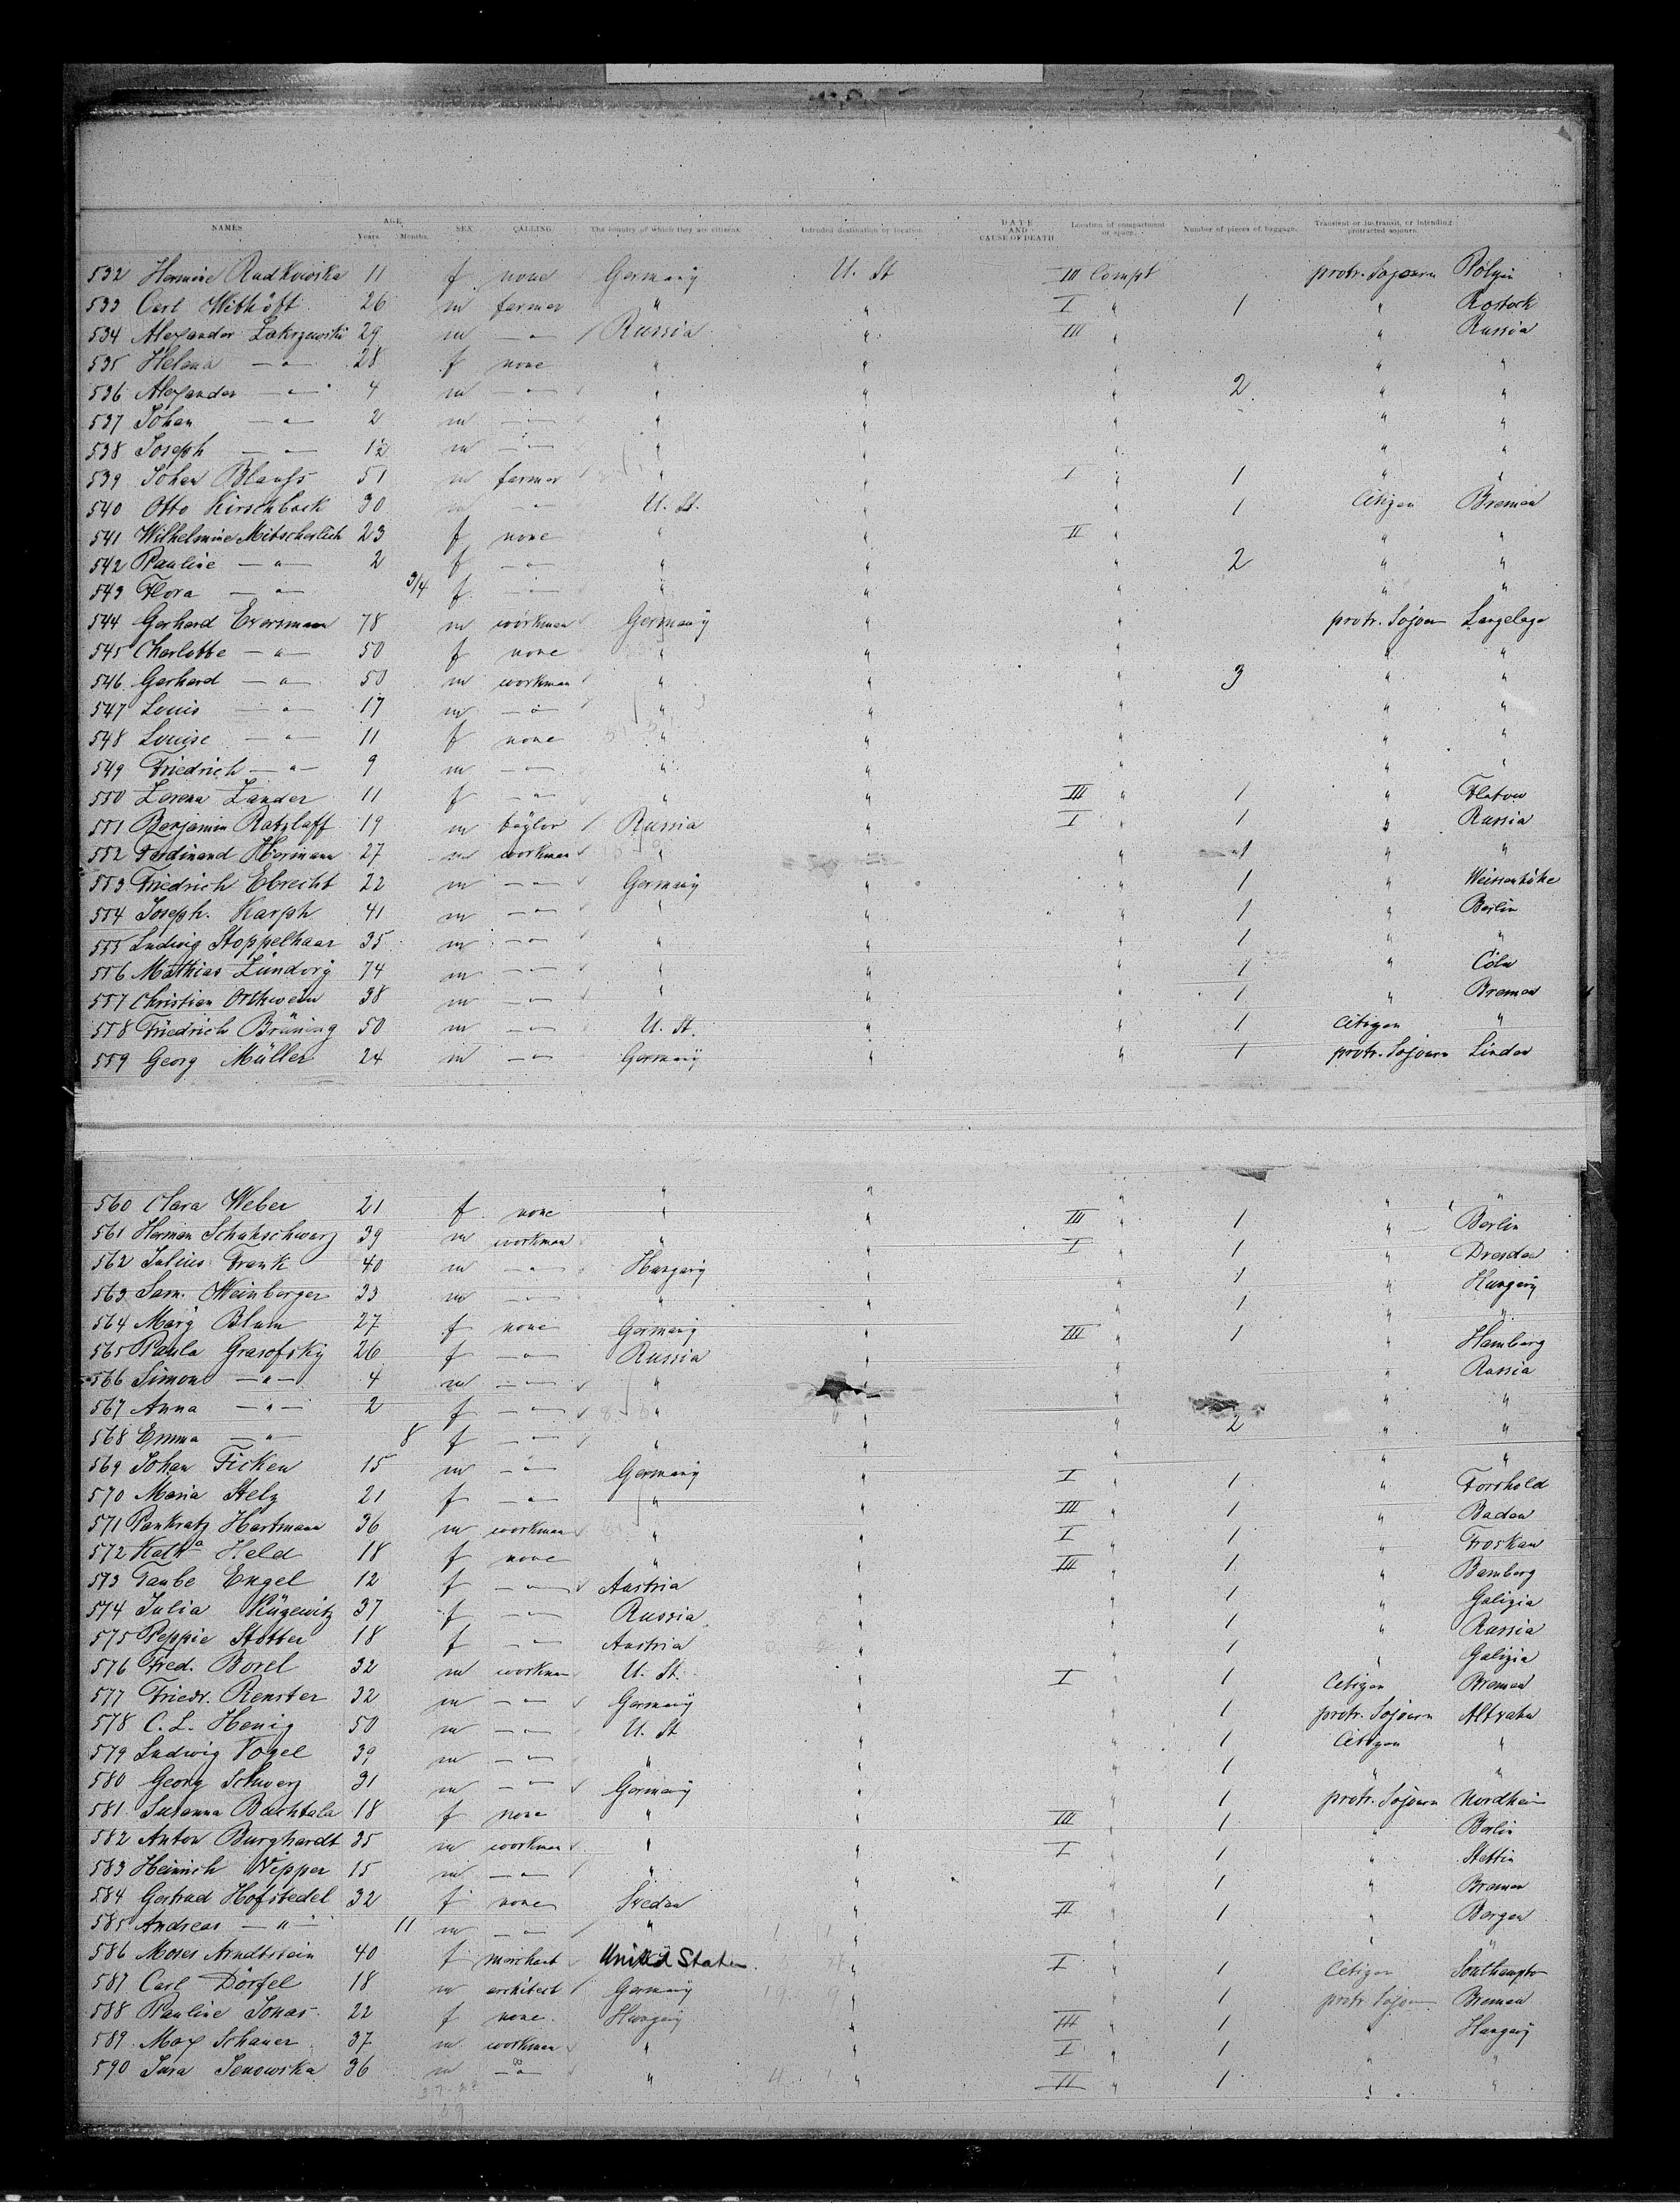 NAMES AGE Years. Months. SEX CALLING The country of which they are citizens. Intended destination or location. DATE AND CAUSE OF DEATH Location of compartment or space. Number of pieces of baggage. Transient or in transit, or intending protracted sojourn.
532 Hermine Radkowska 11 f none Germany U. St III Compt protr. Sojourn
533 Carl Withöft 26 m farmer " " I " 1 " Rostock
534 Alexander Zakrzewski 29 m —"— Russia " III " " Russia
535 Helena —"— 28 f none " " " " "
536 Alexander —"— 4 m —"— " " " 2 " "
537 Johan —"— 2 m —"— " " " " "
538 Joseph —"— 1½ m —"— " " " " "
539 Johan 51 m farmer " " I " 1 " "
540 Otto Kirschbock 30 m —"— U. St. " " 1 Citizen Bremen
541 Wilhelmine Mitscherlich 23 f none " " II " " "
542 Pauline —"— 2 f —"— " " " 2 " "
543 Flora —"— 3/4 f —"— " " " " "
544 Gerhard Eversmann 78 m workman Germany " " protr. Sojour Langelage
545 Charlotte —"— 50 f none " " " " "
546 Gerhard —"— 50 m workman " " " 3 " "
547 Louis —"— 17 m —"— " " " " "
548 Louise —"— 11 f none " " " " "
549 Friedrich —"— 9 m —"— " " " " "
550 Lorena Zander 11 f —"— " " III " 1 " Flatow
551 Benjamin Ratzlaff 19 m taylor Russia " I " 1 " Russia
552 Ferdinand Hermann 27 m workman " " " 1 " "
553 Friedrich Ebrecht 22 m —"— Germany " " 1 " Weissenhöhe
554 Joseph. Karph 41 m —"— " " " 1 " Berlin
555 Ludwig Stoppelhaar 35 m —"— " " " 1 " "
556 Mathias Lündorg 74 m —"— " " " 1 " Cöln
557 Christian Orthwein 38 m —"— " " " 1 " Bremen
558 Friedrich Brüning 50 m —"— U. St. " " 1 Citizen "
559 Georg Müller 24 m —"— Germany " " 1 protr. Sojourn Linden
560 Clara Weber 21 f none " " III " 1 " Berlin
561 Herman Schukschwerz 39 m workman " " I " 1 " Dresden
562 Julius Frank 40 m —"— Hungary " " 1 " Hungary
563 Sam. Weinberger 33 m —"— " " " 1 " "
564 Mary Blum 27 f none Germany " III " 1 " Hamburg
565 Paula Grasofsky 26 f —"— Russia " " " Russia
566 Simon —"— 4 m —"— " " " " "
567 Anna —"— 2 f —"— " " " 2 " "
568 Emma —"— 8 f —"— " " " " "
569 Johan Ficken 15 m —"— Germany " I " 1 "
570 Maria Stelz 21 f —"— " " III " 1 " Baden
571 Pankratz Hartmann 36 m workman " " I " 1 "
572 Katha Held 18 f none " " III " 1 " Bamberg
573 Taube Engel 12 f —"— Austria " " 1 " Galizia
574 Julia Rügewitz 37 f —"— Russia " " 1 " Russia
575 Peppie Stotter 18 f —"— Austria " " 1 " Galizia
576 Fred. Borel 32 m workman U. St. " I " 1 Citizen Bremen
577 Friedr. Renster 32 m —"— Germany " " 1 protr. Sojourn
578 C. L. Henig 50 m —"— U. St " " 1 Citizen "
579 Ludwig Vogel 39 m —"— " " " 1 " "
580 Georg Schwerz 31 m —"— Germany " " 1 protr. Sojourn Nordheim
581 Susanna Bachtala 18 f none " " III " 1 " Berlin
582 Anton Burghardt 35 m workman " " I " 1 " Stettin
583 Heinrich Nipper 15 m —"— " " " 1 " Bremen
584 Gertrud Hofstedel 32 f none Sveden " II " 1 " Bergen
585 Andreas —"— 11 m —"— " " " " "
586 Moses Arndtstein 40 f merchant United States " I " 1 Citizen Southampto
587 Carl Dörfel 18 m architect Germany " " 1 protr Sojour Bremen
588 Pauline Jonas 22 f none Hungary " III " 1 " Hungary
589 Max Schauer 37 m workman " " I " 1 " "
590 Sura Senowska 36 m —"— " " II " 1 " "